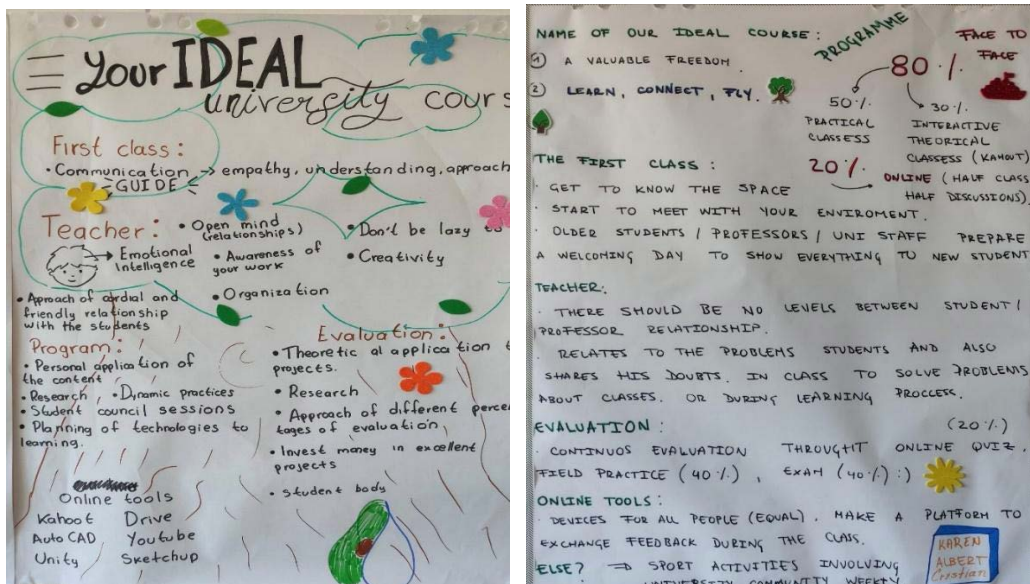 Your IDEAL
university cours
First class:
• Communication → empathy, understanding, approach
GUIDE
Teacher:
→ Emotional
Intelligence
• Aproach of cordial and
friendly relationship
with the students
• Open mind
(relationships)
• Awareness of
your work
• Organization
• Don't be lazy to
• Creativity
Program:
• Personal application of
the content
• Research, • Dynamic practices
• Student council sessions
• Planning of technologies to
learning.
Evaluation:
• Theoretic al application t
projects.
• Research
• Approach of different perce
tages of evaluation
• Invest money in excellent
projects
• Student body
Online tools
Kahoot Drive
AutoCAD Youtube
Unity Sketchup
NAME OF OUR IDEAL COURSE:
1 A VALUABLE FREEDOM.
2 LEARN, CONNECT, FLY.
PROGRAMME
FACE TO
FACE
80 %
50%
PRACTICAL
CLASSESS
30%
INTERACTIVE
THEORICAL
CLASSESS (KAHOUT)
20%
ONLINE (HALF CLASS
HALF DISCUSSIONS).
THE FIRST CLASS:
· GET TO KNOW THE SPACE
· START TO MEET WITH YOUR ENVIROMENT.
· OLDER STUDENTS / PROFESSORS / UNI STAFF PREPARE
A WELCOMING DAY TO SHOW EVERYTHING TO NEW STUDENT
TEACHER:
· THERE SHOULD BE NO LEVELS BETWEEN STUDENT/
PROFESSOR RELATIONSHIP.
· RELATES TO THE PROBLEMS STUDENTS AND ALSO
SHARES HIS DOUBTS. IN CLASS TO SOLVE PROBLEMS
ABOUT CLASSES. OR DURING LEARNING PROCCESS.
EVALUATION: (20%)
· CONTINUOS EVALUATION THROUGHT ONLINE QUIZ,
FIELD PRACTICE (40%), EXAM (40%) :)
ONLINE TOOLS:
· DEVICES FOR ALL PEOPLE (EQUAL). MAKE A PLATFORM TO
EXCHANGE FEEDBACK DURING THE CLASS.
ELSE? ⇒ SPORT ACTIVITIES INVOLVING
UNIVERSITY COMMUNITY WEEKLY
KAREN
ALBERT
Cristian